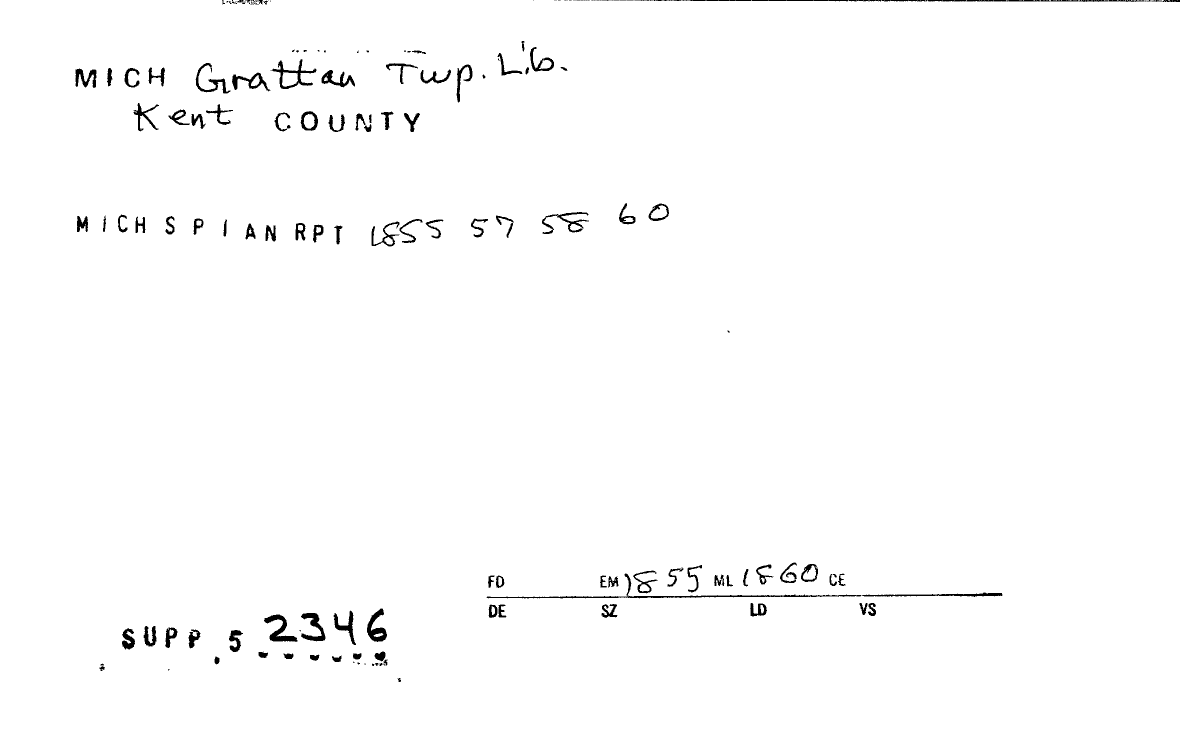 MICH Grattan Twp. Lib.
Kent COUNTY
MICH S P I AN RPT 1855 57 58 60
FD EM 1855 ML 1860 CE
DE SZ LD VS
SUPP. 5 2346